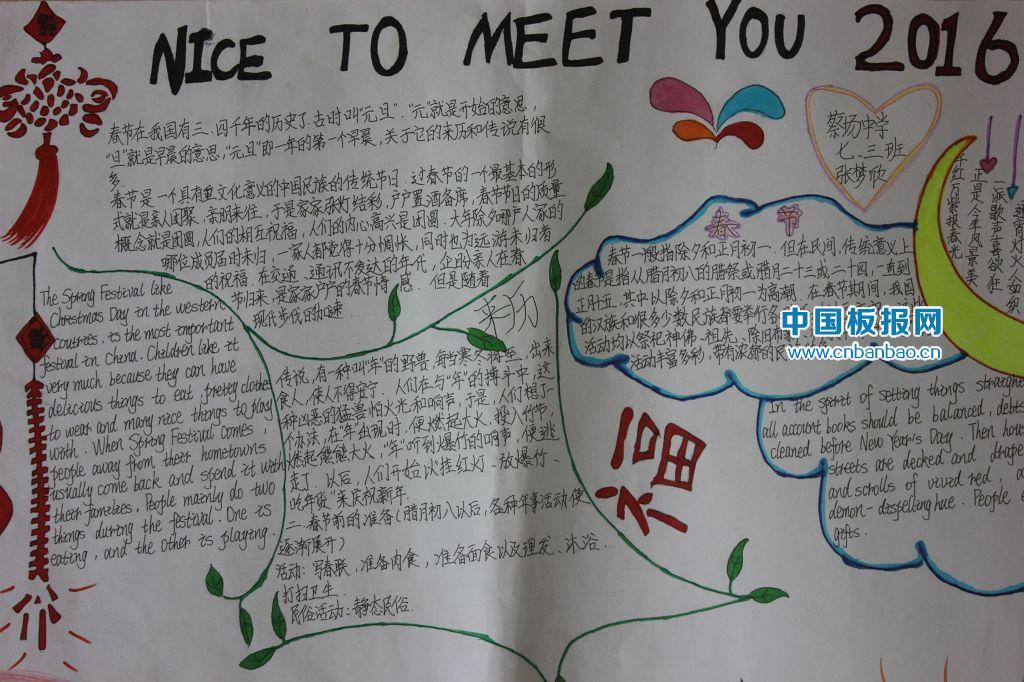 NICE TO MEET YOU 2016
春节在我国有三、四个年的历史了.古时叫"元旦"."元"就是开始的意思,
"旦"就是早晨的意思,"元旦"即一年的第一个早晨.关于它的来历和传说有很
多.
春节是一个具有重文化意义的中国民族的传统节日.过春节的一个最基本的形
式就是亲人团聚、亲朋来往,于是家家张灯结彩,户户置酒备席,春节节日的质量
概念就是团圆,人们的相互祝福,人们的内心高兴是团圆.大年除夕哪户人家的
哪位成员届时未归,一家人都觉得十分惆怅,同时也为远游未归者
的祝福.在交通、通讯不发达的年代,企盼亲人在春
节归来,是家家户户的春节情感.但是随着
现代步伐的加速.
The Spring Festival like
Christmas Day in the western
countries. is the most important
festival in China. Children like it
very much because they can have
delicious things to eat, pretty clothes
to wear and many nice things to play
worth. When Spring Festival comes,
people away from their hometowns
usually come back and spend it with
their families, People mainly do two
things during the festival. One is
eating, and the other is playing.
传说,有一种叫"年"的野兽,每当寒冬将至,出来
食人,使人不得安宁.人们在与"年"的搏斗中,这
种凶恶的猛兽怕火光和响声,于是人们想了
个办法,在"年"出现时,便燃起大火,投入竹节,
燃起熊熊大火,"年"听到爆竹的响声,便逃
走了.以后,人们开始以挂红灯、放爆竹、
吃年货"来庆祝新年.
二.春节前的准备(腊月初八以后,各种年事活动便
逐渐展开)
活动:写春联,准备肉食,准备面食以及理发、沐浴.
打扫卫生.
民俗活动:静态民俗.
蔡场中学
七、三班
张梦欣
春节
春节一般指除夕和正月初一.但在民间,传统意义上
的春节是指从腊月初八的腊祭或腊月二十三或二十四,一直到
正月十五,其中以除夕和正月初一为高潮.在春节期间,我国
的汉族和很多少数民族都要举行各
活动均以祭祀神佛、祖先、除旧布
活动丰富多彩,带有浓郁的民
中国板报网
www.cnbanbao.cn
一派歌声喜欲狂
正是今年风景美
千红万紫报春光
福
In the spirit of setting things straight
all account books should be balanced, debts
cleaned before New Year's Day. Then hous
streets are decked and drape
and scrolls of vivid red, a
demon-dispelling hue. People e
gifts.